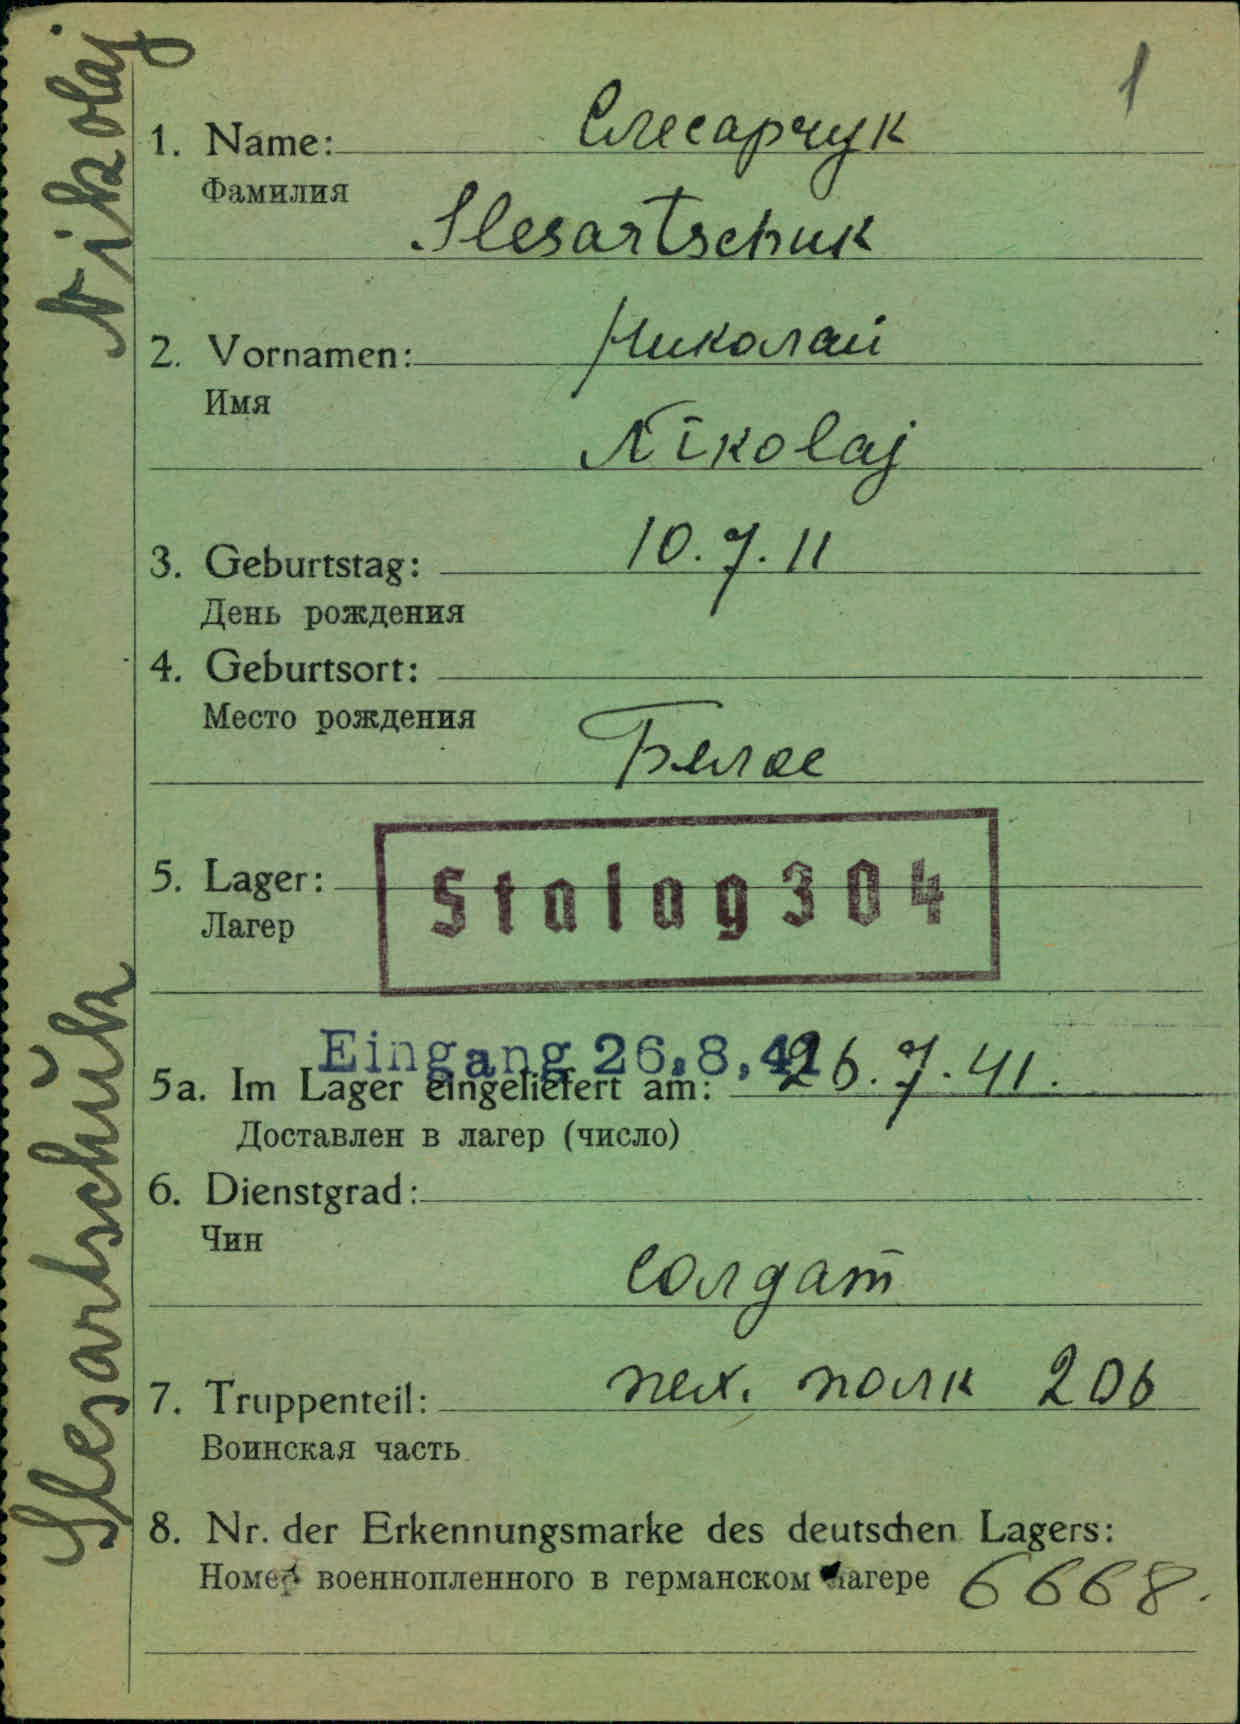 1
1. Name: Слесарчук
Фамилия
Slesartschuk
2. Vornamen: Николай
Имя
Nikolaj
3. Geburtstag: 10.7.11
День рождения
4. Geburtsort:
Место рождения
Белое
5. Lager: Stalag 304
Лагер
Eingang 26.8.41
5a. Im Lager eingeliefert am: 26.7.41.
Доставлен в лагер (число)
6. Dienstgrad:
Чин
Солдат
7. Truppenteil: пех. полк 206
Воинская часть
8. Nr. der Erkennungsmarke des deutschen Lagers:
Номер военнопленного в германском лагере 6668.
Slesartschuk Nikolaj